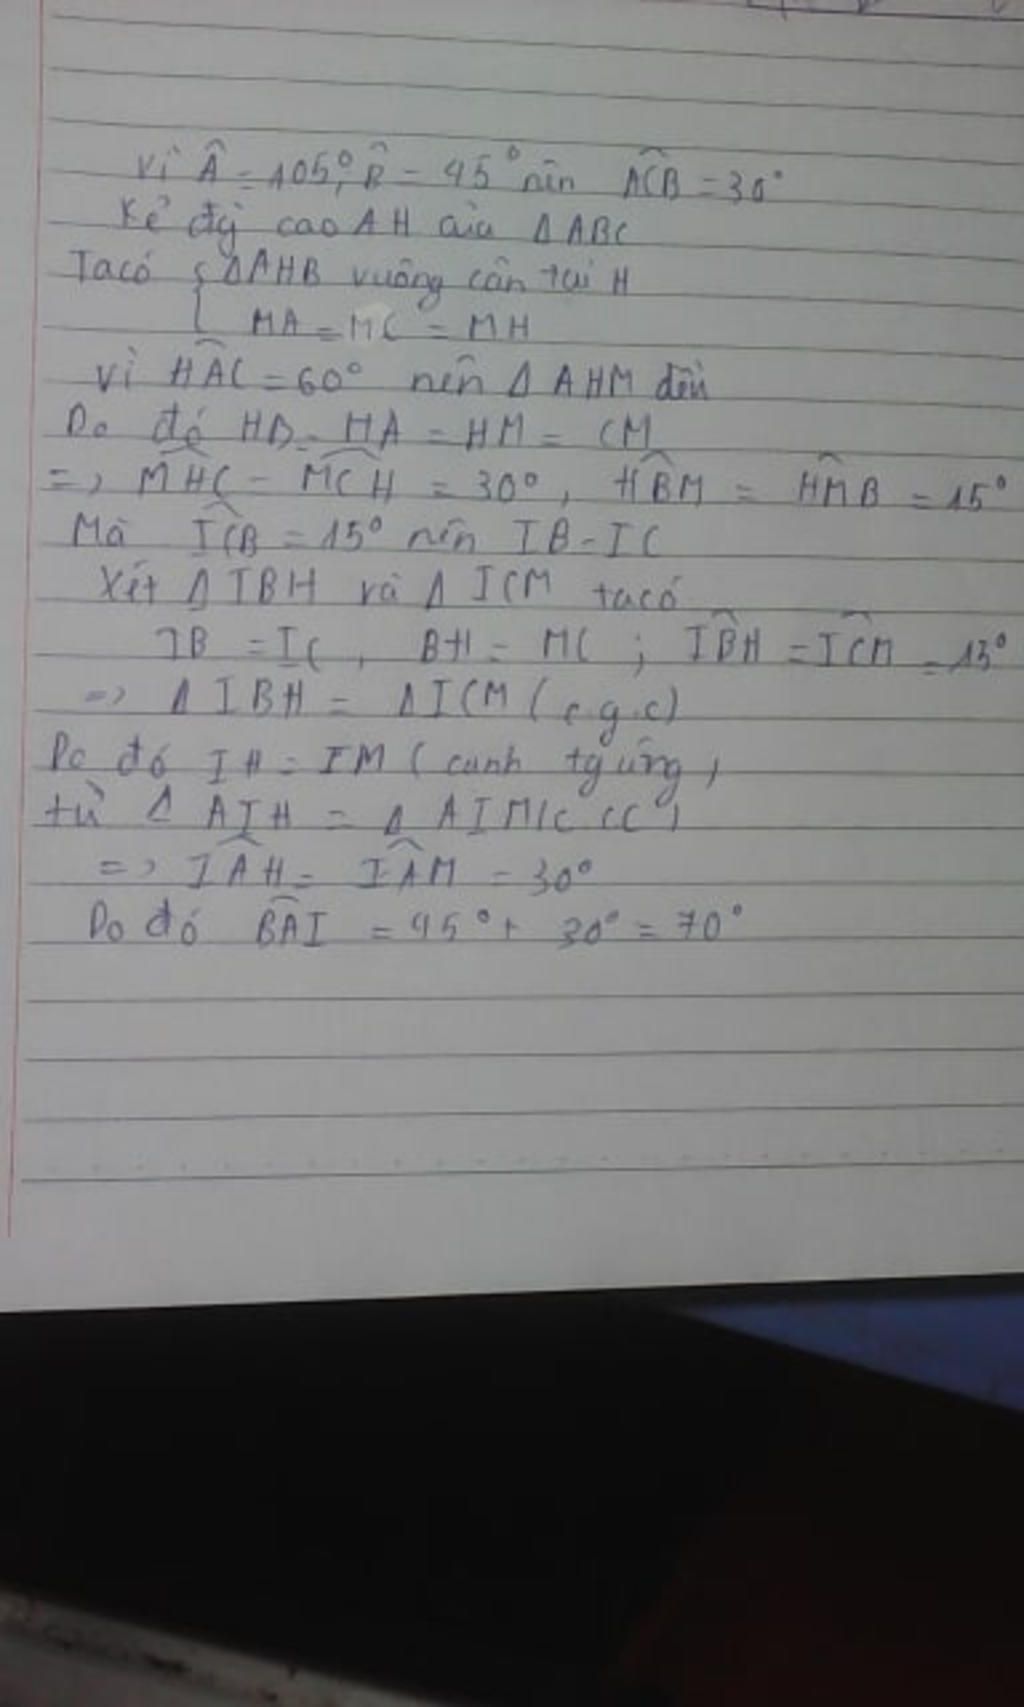 Vì Â = 105°, B̂ = 45° nên ACB̂ = 30°
Kẻ đg cao AH của Δ ABC
Ta có { Δ AHB vuông cân tại H
MA = MC = MH
Vì HÂC = 60° nên Δ AHM đều
Do đó HB = HA = HM = CM
=> MĤC = MĈH = 30°, HB̂M = HM̂B = 15°
Mà IĈB = 15° nên IB = IC
Xét Δ IBH và Δ ICM ta có
IB = IC, BH = MC ; IB̂H = IĈM = 15°
=> Δ IBH = Δ ICM (c.g.c)
Do đó IH = IM (cạnh tg ứng)
từ Δ AIH = Δ AIM (c c c)
=> IÂH = IÂM = 30°
Do đó BÂI = 45° + 30° = 70°